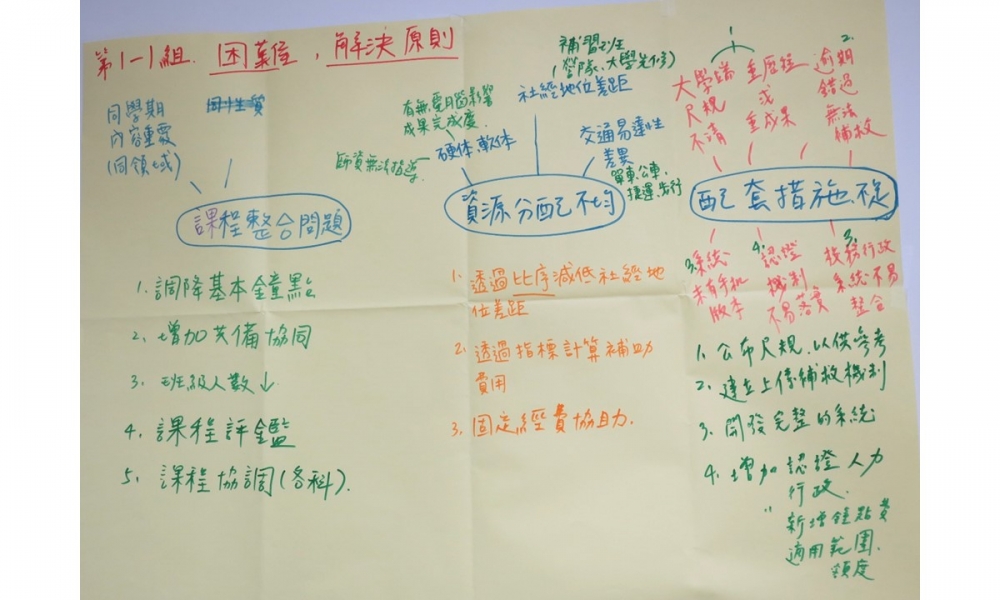 第1-1組. 困難, 解決原則
同學期
內容重疊
(同領域)
同性質
課程整合問題
1. 調降基本鐘點
2. 增加共備協同
3. 班級人數↓
4. 課程評鑑
5. 課程協調(各科).
補習班
(營隊、大學先修)
社經地位差距
有無費用留影響
成果完成度
硬体、軟体
師資無法指導
交通易達性
差異
單車、公車、
捷運、步行
資源分配不均
1. 透過比序減低社經地
位差距
2. 透過指標計算補助
費用
3. 固定經費協助.
1.
大學端
尺規
不清
重歷程
淺
重成果
2.
逾期
錯過
無法
補救
配套措施不足
3. 系統
未有手机
版本
4. 認證
機制
不易落實
3.
校務行政
系統不易
整合
1. 公布尺規.以供參考
2. 建立上傳補救機制
3. 開發完整的系統
4. 增加認證人力
行政.
" 新增鐘點費
適用範圍.
額度